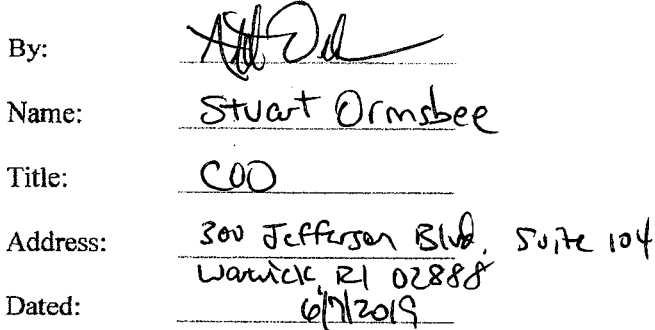 By:
Name: Stuart Ormsbee
Title: COO
Address: 300 Jefferson Blvd. Suite 104
Warwick, RI 02888
Dated: 6/7/2019